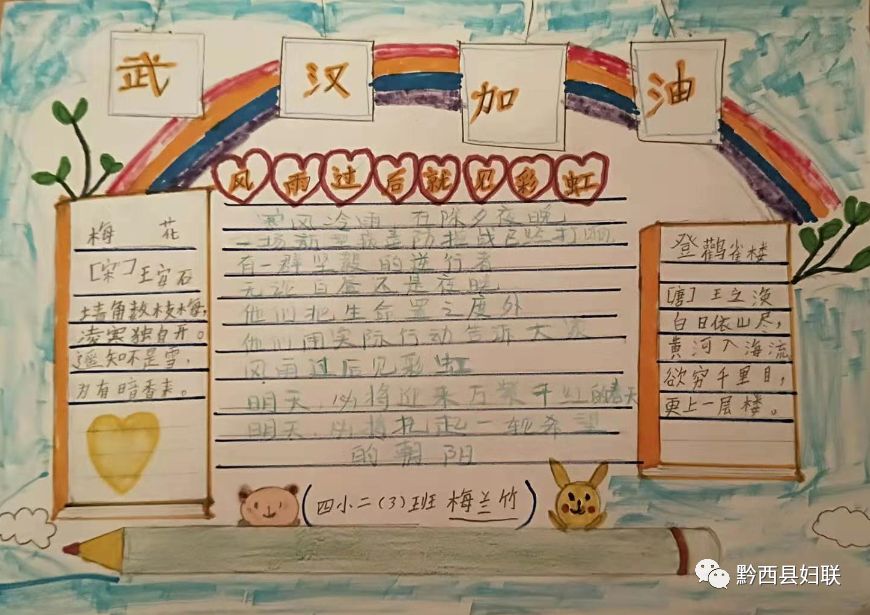 武 汉 加 油
风雨过后就见彩虹
梅 花
[宋]王安石
墙角数枝梅,
凌寒独自开。
遥知不是雪,
为有暗香来。
寒风冷雨 在除夕夜晚
一场新 防控战 打响
有一群坚毅的逆行者
无论白昼还是夜晚
他们把生命置之度外
他们用实际行动告诉大家
风雨过后见彩虹
明天,必将迎来万紫千红的春天
明天,必将托起一轮希望
的朝阳
登鹳雀楼
[唐] 王之涣
白日依山尽,
黄河入海流
欲穷千里目,
更上一层楼。
(四小二(3)班 梅兰竹)
黔西县妇联